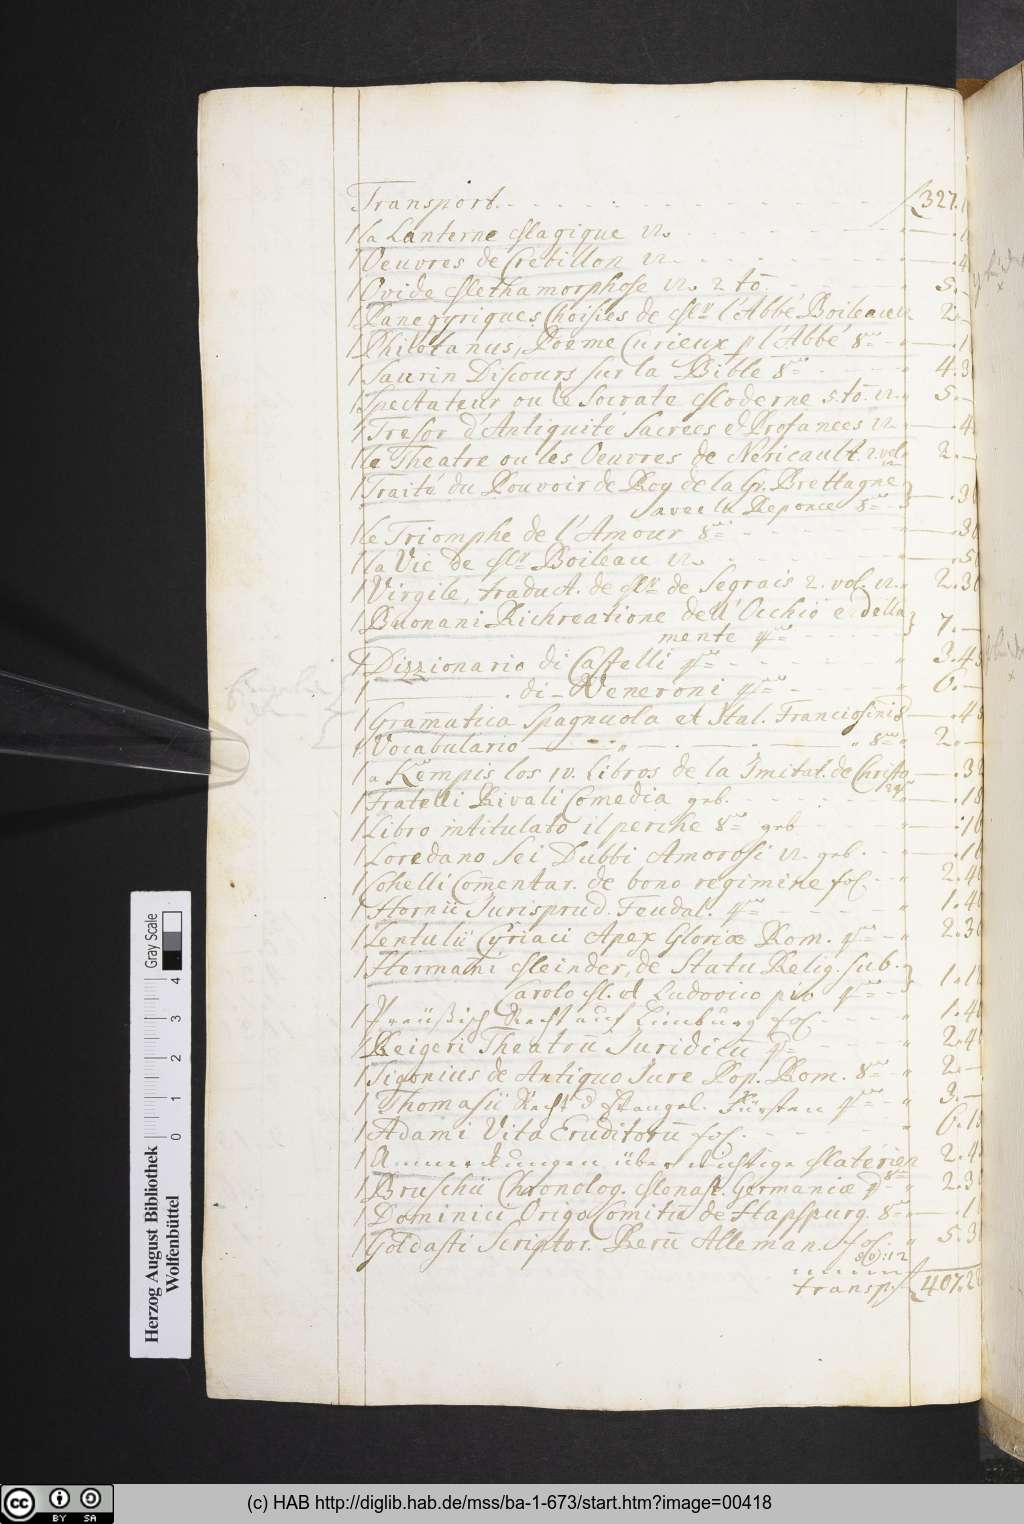 Transport. 327.
1 la Lanterne Magique 12.
1 Oeuvres de Crebillon 12. 4
1 Ovide Methamorphose 12. 2 to. 5.
1 Panegyriques Choisies de Mr l'Abbé Boileau 12 2.
1 Philotanus, Poeme Curieux p l'Abbé 8vo 1
1 Saurin Discours sur la Bible 8vo 4.3
1 Spectateur ou le Socrate Moderne 5. to. 12. 5.
1 Tresor d'Antiquité Sacrees et Profanees 12. 4
1 le Theatre ou les Oeuvres de Nericault. 2. vol 12 2.
1 Traité du Pouvoir de Roy de la Gr. Brettagne
avec la Reponce 8vo .3
1 le Triomphe de l'Amour 8vo .3
1 la Vie de Mr Boileau 12. .5
1 Virgile, traduct. de Mr de Segrais 2. vol. 12. 2.3
1 Buonani Richreatione dell' Occhio e della
mente 4to 7.
1 Dizzionario di Castelli 4to 3.4
1 di Veneroni 4to 6.
1 Gram̄atica Spagnuola et Ital. Franciosini 8 .4
1 Vocabulario 8vo 2.
1 a Kempis los IV. Libros de la Imitat. de Christo .3
1 Fratelli Rivali Comedia geb. .18
1 Libro intitulato il perche 8vo geb .1
1 Loredano Sei Dubbi Amorosi 12. geb. .1
1 Cohelli Com̄entar. de bono regimine fol. 2.4
1 Hornii Jurisprud. Feudal. 4to 1.4
1 Lentulii Cyriaci Apex Gloriæ Rom. 4to 2.3
1 Herman̄i Meinder, de Statu Relig. sub.
Carolo M. et Ludovico pio 4to 1.1
1 Preüßisch Recht auf Limburg fol. 1.4
1 Reigeri Theatru̅ Juridicu̅ 2.4
1 Sigonius de Antiquo Jure Pop. Rom. 8vo 2.
1 Thomasii Recht d Evangel. Fürsten 4to 3.
1 Adami Vita Eruditoru̅ fol. 6.1
1 Anmerckungen über wichtige Materien 8vo 2.4
1 Bruschii Chronolog. Monast. Germaniæ 2.3
1 Dominici Origo Comitu̅ de Hapspurg. 8vo .1
1 Goldasti Scriptor. Reru̅ Alleman. fol. 5.3
transp. 407.2
Herzog August Bibliothek
Wolfenbüttel
0 1 2 3 4
Gray Scale
cc BY SA
(c) HAB http://diglib.hab.de/mss/ba-1-673/start.htm?image=00418